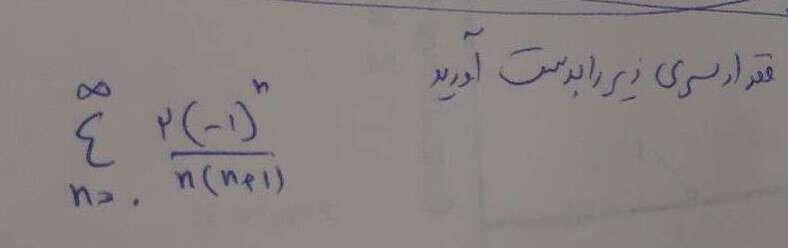 مقدار سری زیر را بدست آورید
∞
Σ ۲(-1)^n / n(n+1)
n=۰